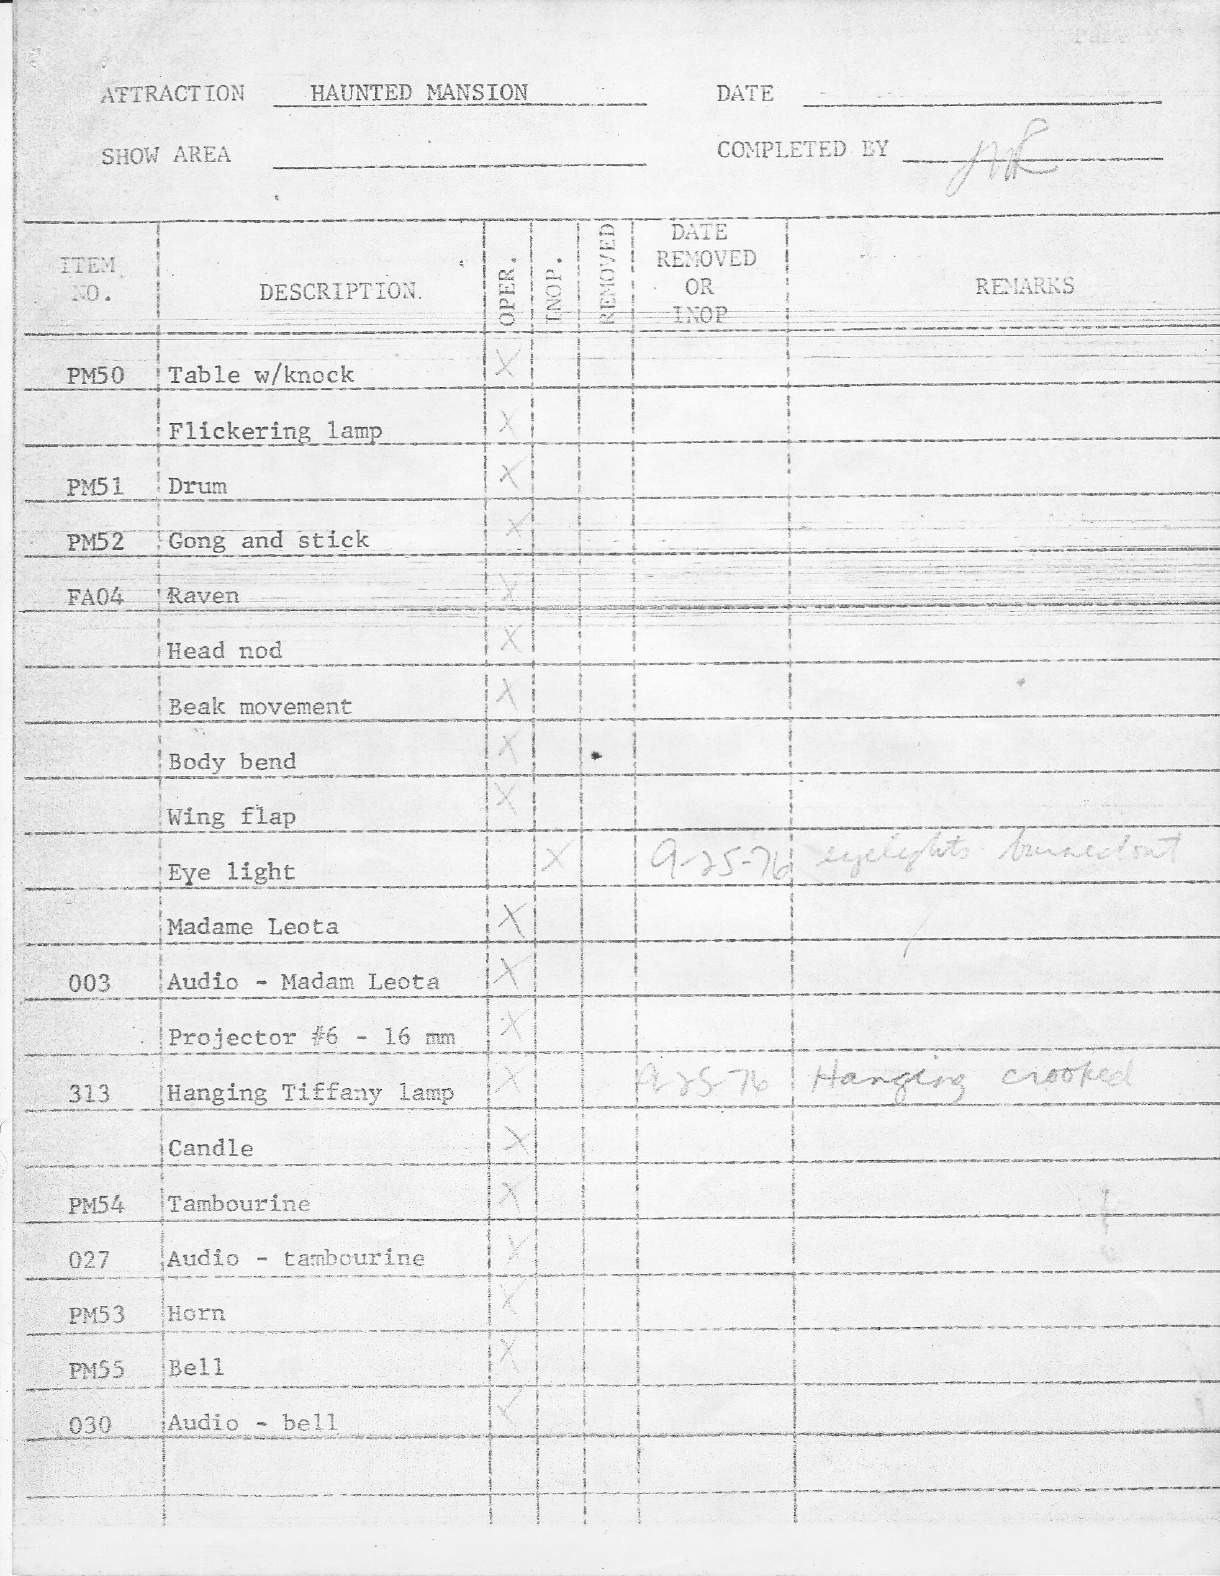 ATTRACTION HAUNTED MANSION DATE
SHOW AREA COMPLETED BY
ITEM NO. DESCRIPTION. OPER. INOP. REMOVED DATE REMOVED OR INOP REMARKS
PM50 Table w/knock X
Flickering lamp X
PM51 Drum X
PM52 Gong and stick X
FA04 Raven X
Head nod X
Beak movement X
Body bend X
Wing flap X
Eye light X 9-25-76 eyelights burned out
Madame Leota X
003 Audio - Madam Leota X
Projector #6 - 16 mm X
313 Hanging Tiffany lamp X 9-25-76 Hanging crooked
Candle X
PM54 Tambourine X
027 Audio - tambourine X
PM53 Horn X
PM55 Bell X
030 Audio - bell ✓